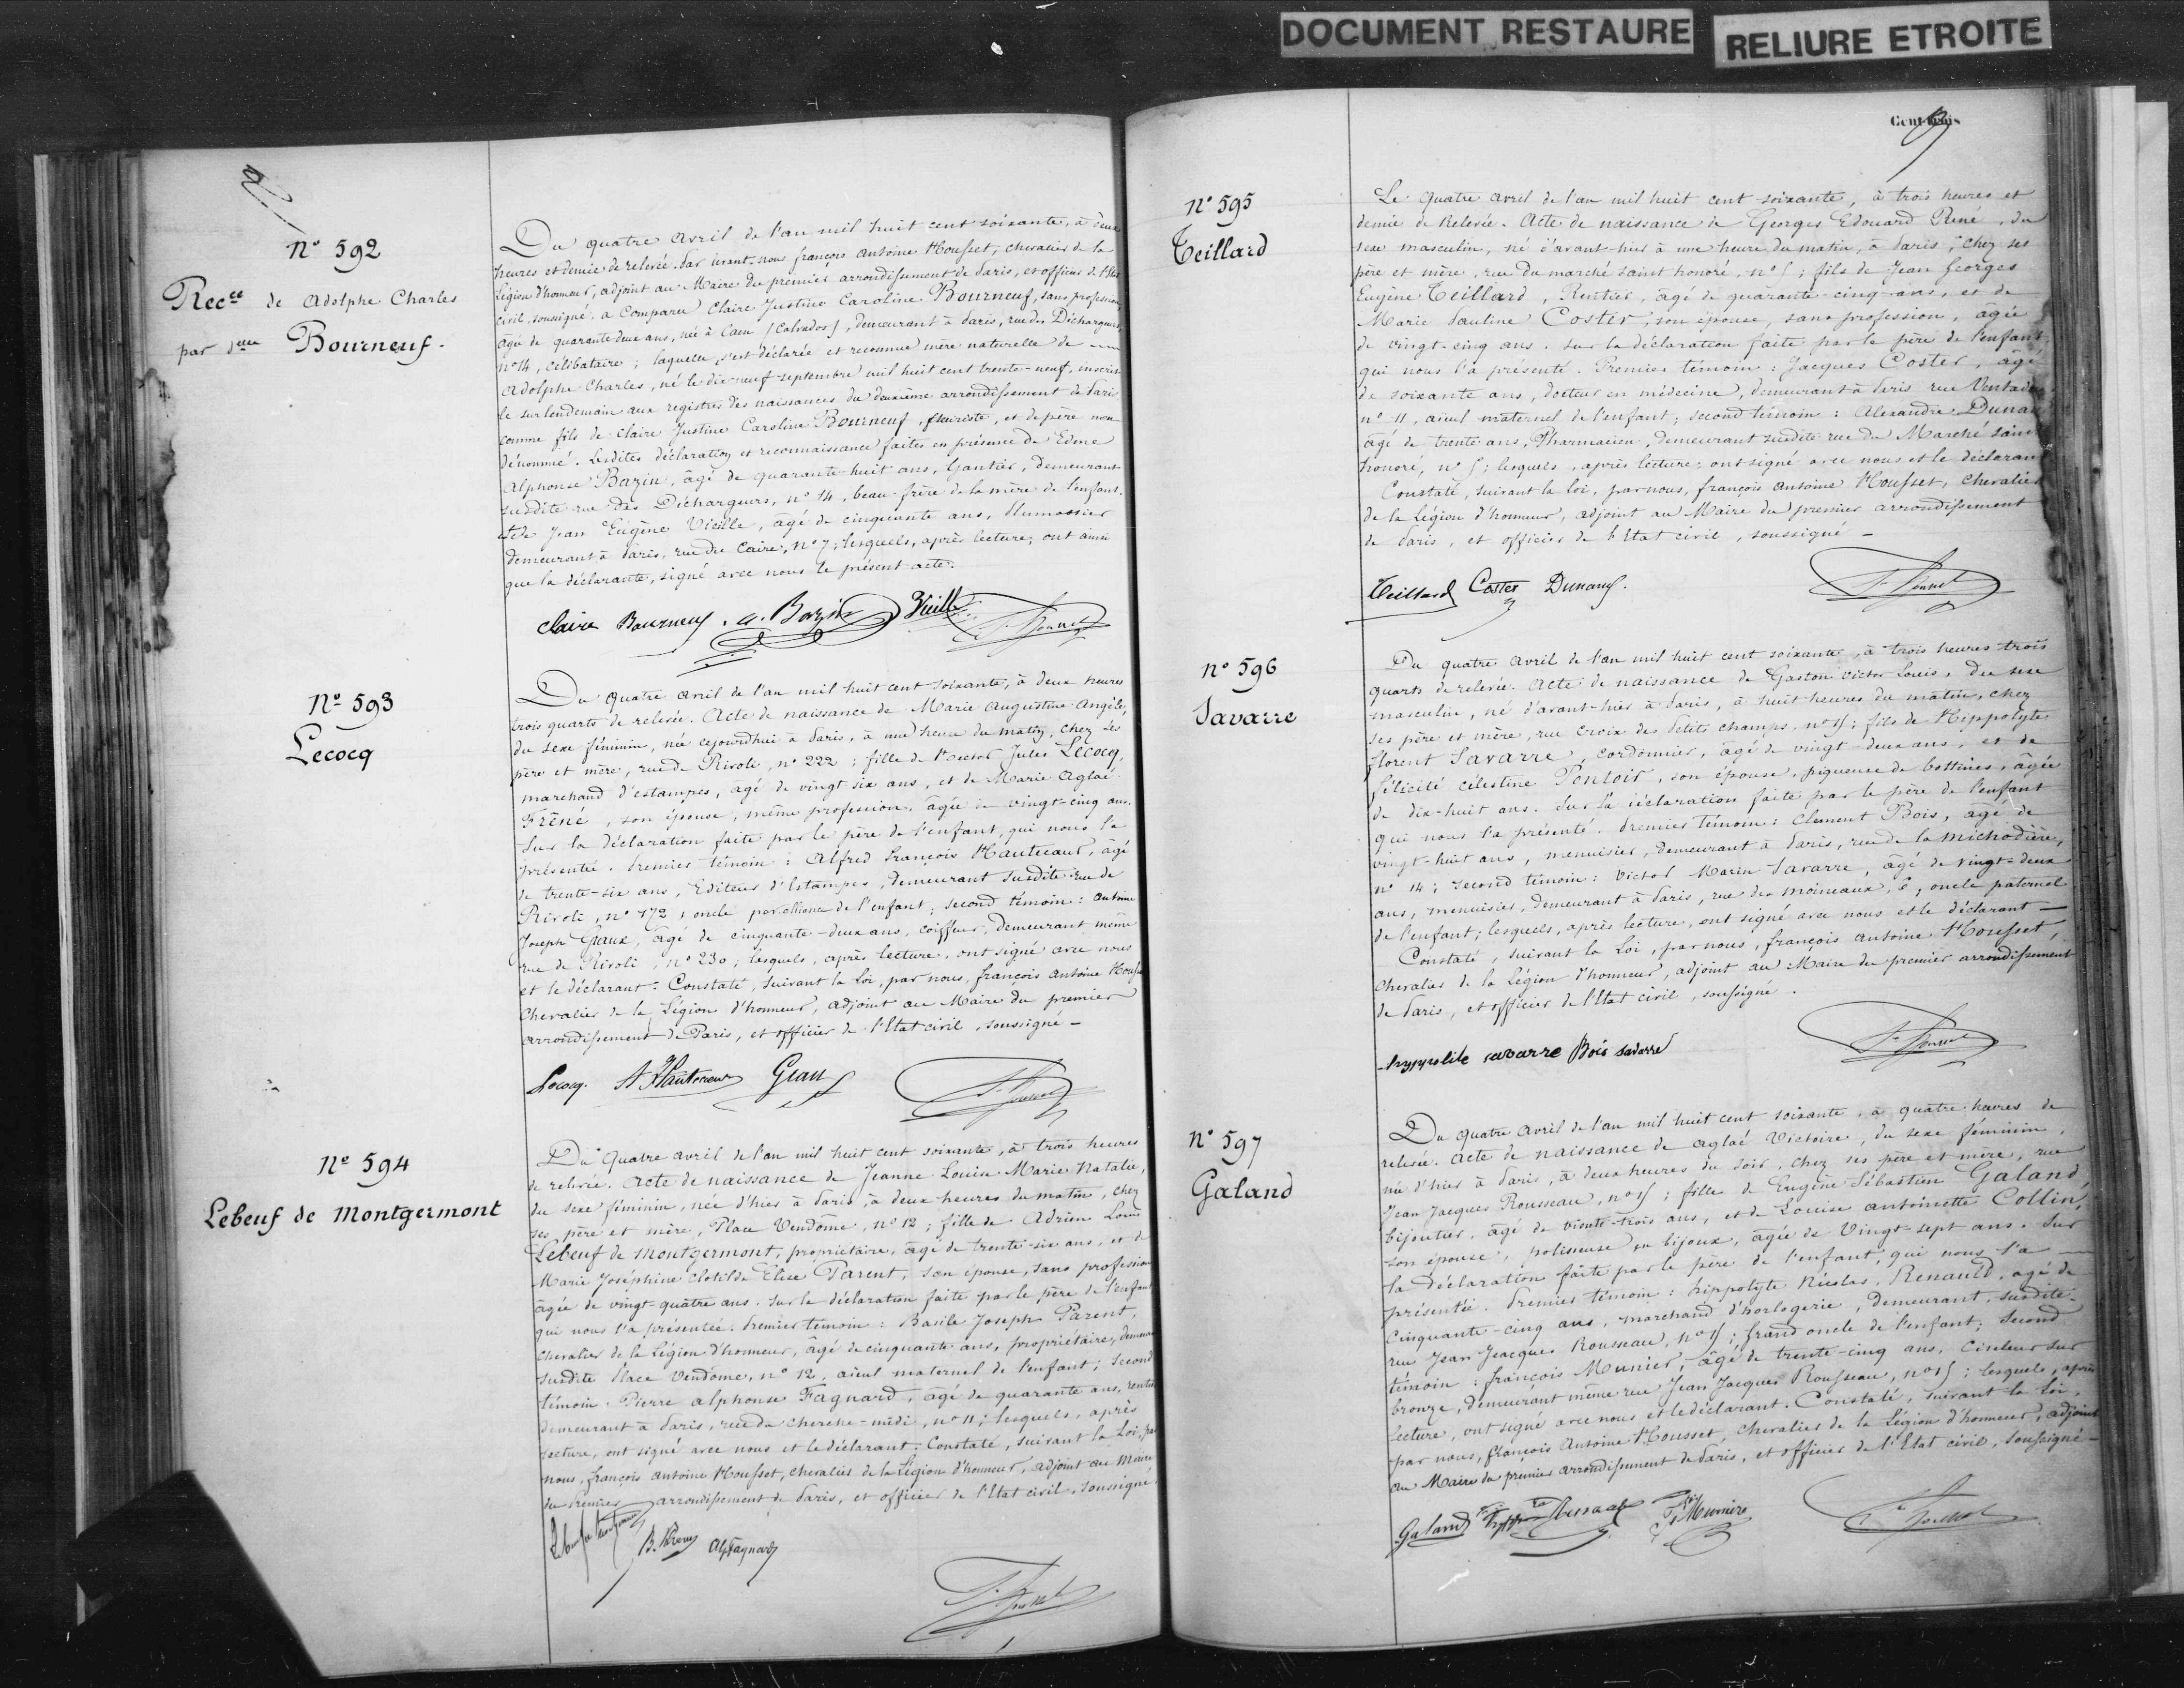 DOCUMENT RESTAURE
RELIURE ETROITE
N° 592
Recce de Adolphe Charles
par Dlle Bourneuf.
Du quatre avril de l'an mil huit cent soixante, à deux
heures et demie de relevée. Par devant nous françois Antoine Housset, chevalier de la
Légion d'honneur, adjoint au Maire du premier arrondissement de Paris, et officier de l'Etat
civil, soussigné. a Comparu Claire Justine Caroline Bourneuf, sans profession,
âgée de quarante deux ans, née à Caen (Calvados), demeurant à Paris, rue des Déchargeurs
n° 14, célibataire; laquelle s'est déclarée et reconnue mère naturelle de
Adolphe Charles, né le dix-neuf septembre mil huit cent trente-neuf, inscrit
le surlendemain aux registres des naissances du deuxième arrondissement de Paris
comme fils de Claire Justine Caroline Bourneuf, fleuriste, et de père non
dénommé. Lesdites déclaration et reconnaissance faites en présence de Edme
Alphonse Bazin, âgé de quarante-huit ans, Gantier, demeurant
susdite rue des Déchargeurs, n° 14, beau-frère de la mère de l'enfant.
et de Jean Eugène Vieille, âgé de cinquante ans, Plumassier
demeurant à Paris, rue du Caire, n° 7; lesquels, après lecture, ont ainsi
que la déclarante, signé avec nous le présent acte.
Claire Bourneuf. a. Bazin Vieille
N° 593
Lecocq
Du quatre avril de l'an mil huit cent soixante, à deux heures
trois quarts de relevée. Acte de naissance de Marie Augustine Angèle,
du sexe féminin, née cejourdhui à Paris, à une heure du matin, chez ses
père et mère, rue de Rivoli, n° 222; fille de Victor Jules Lecocq,
marchand d'estampes, âgé de vingt six ans, et de Marie Aglaé
Frêné, son épouse, même profession, âgée de vingt-cinq ans.
Sur la déclaration faite par le père de l'enfant, qui nous l'a
présentée. Premier témoin: Alfred François Hautecœur, âgé
de trente-six ans, Editeur d'Estampes, demeurant susdite rue de
Rivoli, n° 172, oncle par alliance de l'enfant; second témoin: Antoine
Joseph Graux, âgé de cinquante-deux ans, coiffeur, demeurant même
rue de Rivoli, n° 230; lesquels, après lecture, ont signé avec nous
et le déclarant. Constaté, suivant la Loi, par nous, françois Antoine Housset
Chevalier de la Légion d'honneur, adjoint au Maire du premier
arrondissement de Paris, et officier de l'Etat civil, soussigné -
Lecocq. A Hautecœur Graux
N° 594
Lebeuf de Montgermont
Du Quatre avril de l'an mil huit cent soixante, à trois heures
de relevée. Acte de naissance de Jeanne Louise Marie Natalie,
du sexe féminin, née d'hier à Paris, à deux heures du matin, chez
ses père et mère, Place Vendôme, n° 12; fille de Adrien Louis
Lebeuf de Montgermont, propriétaire, âgé de trente-six ans, et de
Marie Joséphine Clotilde Elise Parent, son épouse, sans profession
âgée de vingt-quatre ans. Sur la déclaration faite par le père de l'enfant
qui nous l'a présentée. Premier témoin: Basile Joseph Parent,
Chevalier de la Légion d'honneur, âgé de cinquante ans, propriétaire, demeurant
susdite Place Vendôme, n° 12, aïeul maternel de l'enfant; second
témoin. Pierre Alphonse Fagnard, âgé de quarante ans, rentier
demeurant à Paris, rue du Cherche-midi, n° 11; lesquels, après
lecture, ont signé avec nous et le déclarant; Constaté, suivant la Loi, par
nous, françois Antoine Housset, chevalier de la Légion d'honneur, adjoint au Maire
du Premier arrondissement de Paris, et officier de l'Etat civil, soussigné.
B. Parent Alp Fagnard
Cent trois
N° 595
Teillard
Le Quatre avril de l'an mil huit cent soixante, à trois heures et
demie de Relevée. Acte de naissance de Georges Edouard René, du
sexe masculin, né d'avant-hier à une heure du matin, à Paris, chez ses
père et mère, rue du marché saint honoré, n° 5; fils de Jean Georges
Eugène Teillard, Rentier, âgé de quarante-cinq ans, et de
Marie Pauline Coster, son épouse, sans profession, âgée
de vingt-cinq ans. Sur la déclaration faite par le père de l'enfant,
qui nous l'a présenté. Premier témoin: Jacques Coster, âgé
de soixante ans, docteur en médecine, demeurant à Paris rue Ventadour
n° 11, aïeul maternel de l'enfant; second témoin: Alexandre Dunan
âgé de trente ans, Pharmacien, demeurant susdite rue du Marché saint
honoré, n° 5; lesquels, après lecture, ont signé avec nous et le déclarant
Constaté, suivant la loi, par nous, françois Antoine Housset, Chevalier
de la Légion d'honneur, adjoint au Maire du premier arrondissement
de Paris, et officier de l'Etat civil, soussigné -
Teillard Coster
N° 596
Savarre
Du quatre avril de l'an mil huit cent soixante, à trois heures trois
quarts de relevée. Acte de naissance de Gaston Victor Louis, du sexe
masculin, né d'avant-hier à Paris, à huit heures du matin, chez
ses père et mère, rue Croix des Petits champs, n° 15; fils de Hippolyte
florent Savarre, cordonnier, âgé de vingt-deux ans, et de
félicité célestine Pontoir, son épouse, piqueuse de bottines, âgée
de dix-huit ans. Sur la déclaration faite par le père de l'enfant
qui nous l'a présenté. Premier témoin: Clement Bois, âgé de
vingt-huit ans, menuisier, demeurant à Paris, rue de la michodière,
n° 14; second témoin: Victor Marin Savarre, âgé de vingt-deux
ans, menuisier, demeurant à Paris, rue des moineaux, 6, oncle paternel
de l'enfant; lesquels, après lecture, ont signé avec nous et le déclarant -
Constaté, suivant la Loi, par nous, françois Antoine Housset,
chevalier de la Légion d'honneur, adjoint au Maire du premier arrondissement
de Paris, et officier de l'Etat civil, soussigné.
hyppolite savarre Bois savarre
N° 597
Galand
Du Quatre avril de l'an mil huit cent soixante, à quatre heures de
relevée. Acte de naissance de Aglaé Victoire, du sexe féminin,
née d'hier à Paris, à deux heures du soir, chez ses père et mère, rue
Jean Jacques Rousseau, n° 15; fille de Eugène Sébastien Galand
bijoutier, âgé de trente-trois ans, et de Louise Antoinette Collin,
son épouse, polisseuse en bijoux, âgée de Vingt-sept ans. Sur
la déclaration faite par le père de l'enfant, qui nous l'a
présentée. Premier témoin: hippolyte Nicolas Renauld, âgé de
Cinquante-cinq ans, marchand d'horlogerie, demeurant susdite
rue Jean Jeacques Rousseau, n° 15; grand oncle de l'enfant; Second
témoin: françois Munier, âgé de trente-cinq ans, Ciseleur sur
bronze, demeurant même rue Jean Jacques Rousseau, n° 15; lesquels, après
Lecture, ont signé avec nous et le déclarant. Constaté, suivant la loi,
par nous, françois Antoine Housset, chevalier de la Légion d'honneur, adjoint
au Maire du premier arrondissement de Paris, et officier de l'Etat civil, soussigné -
Galand